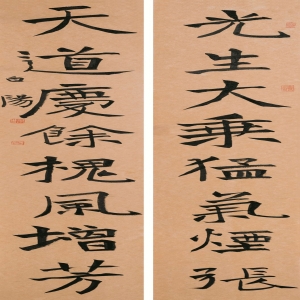 光生大乘猛氣煙張
天道慶餘槐風增芳